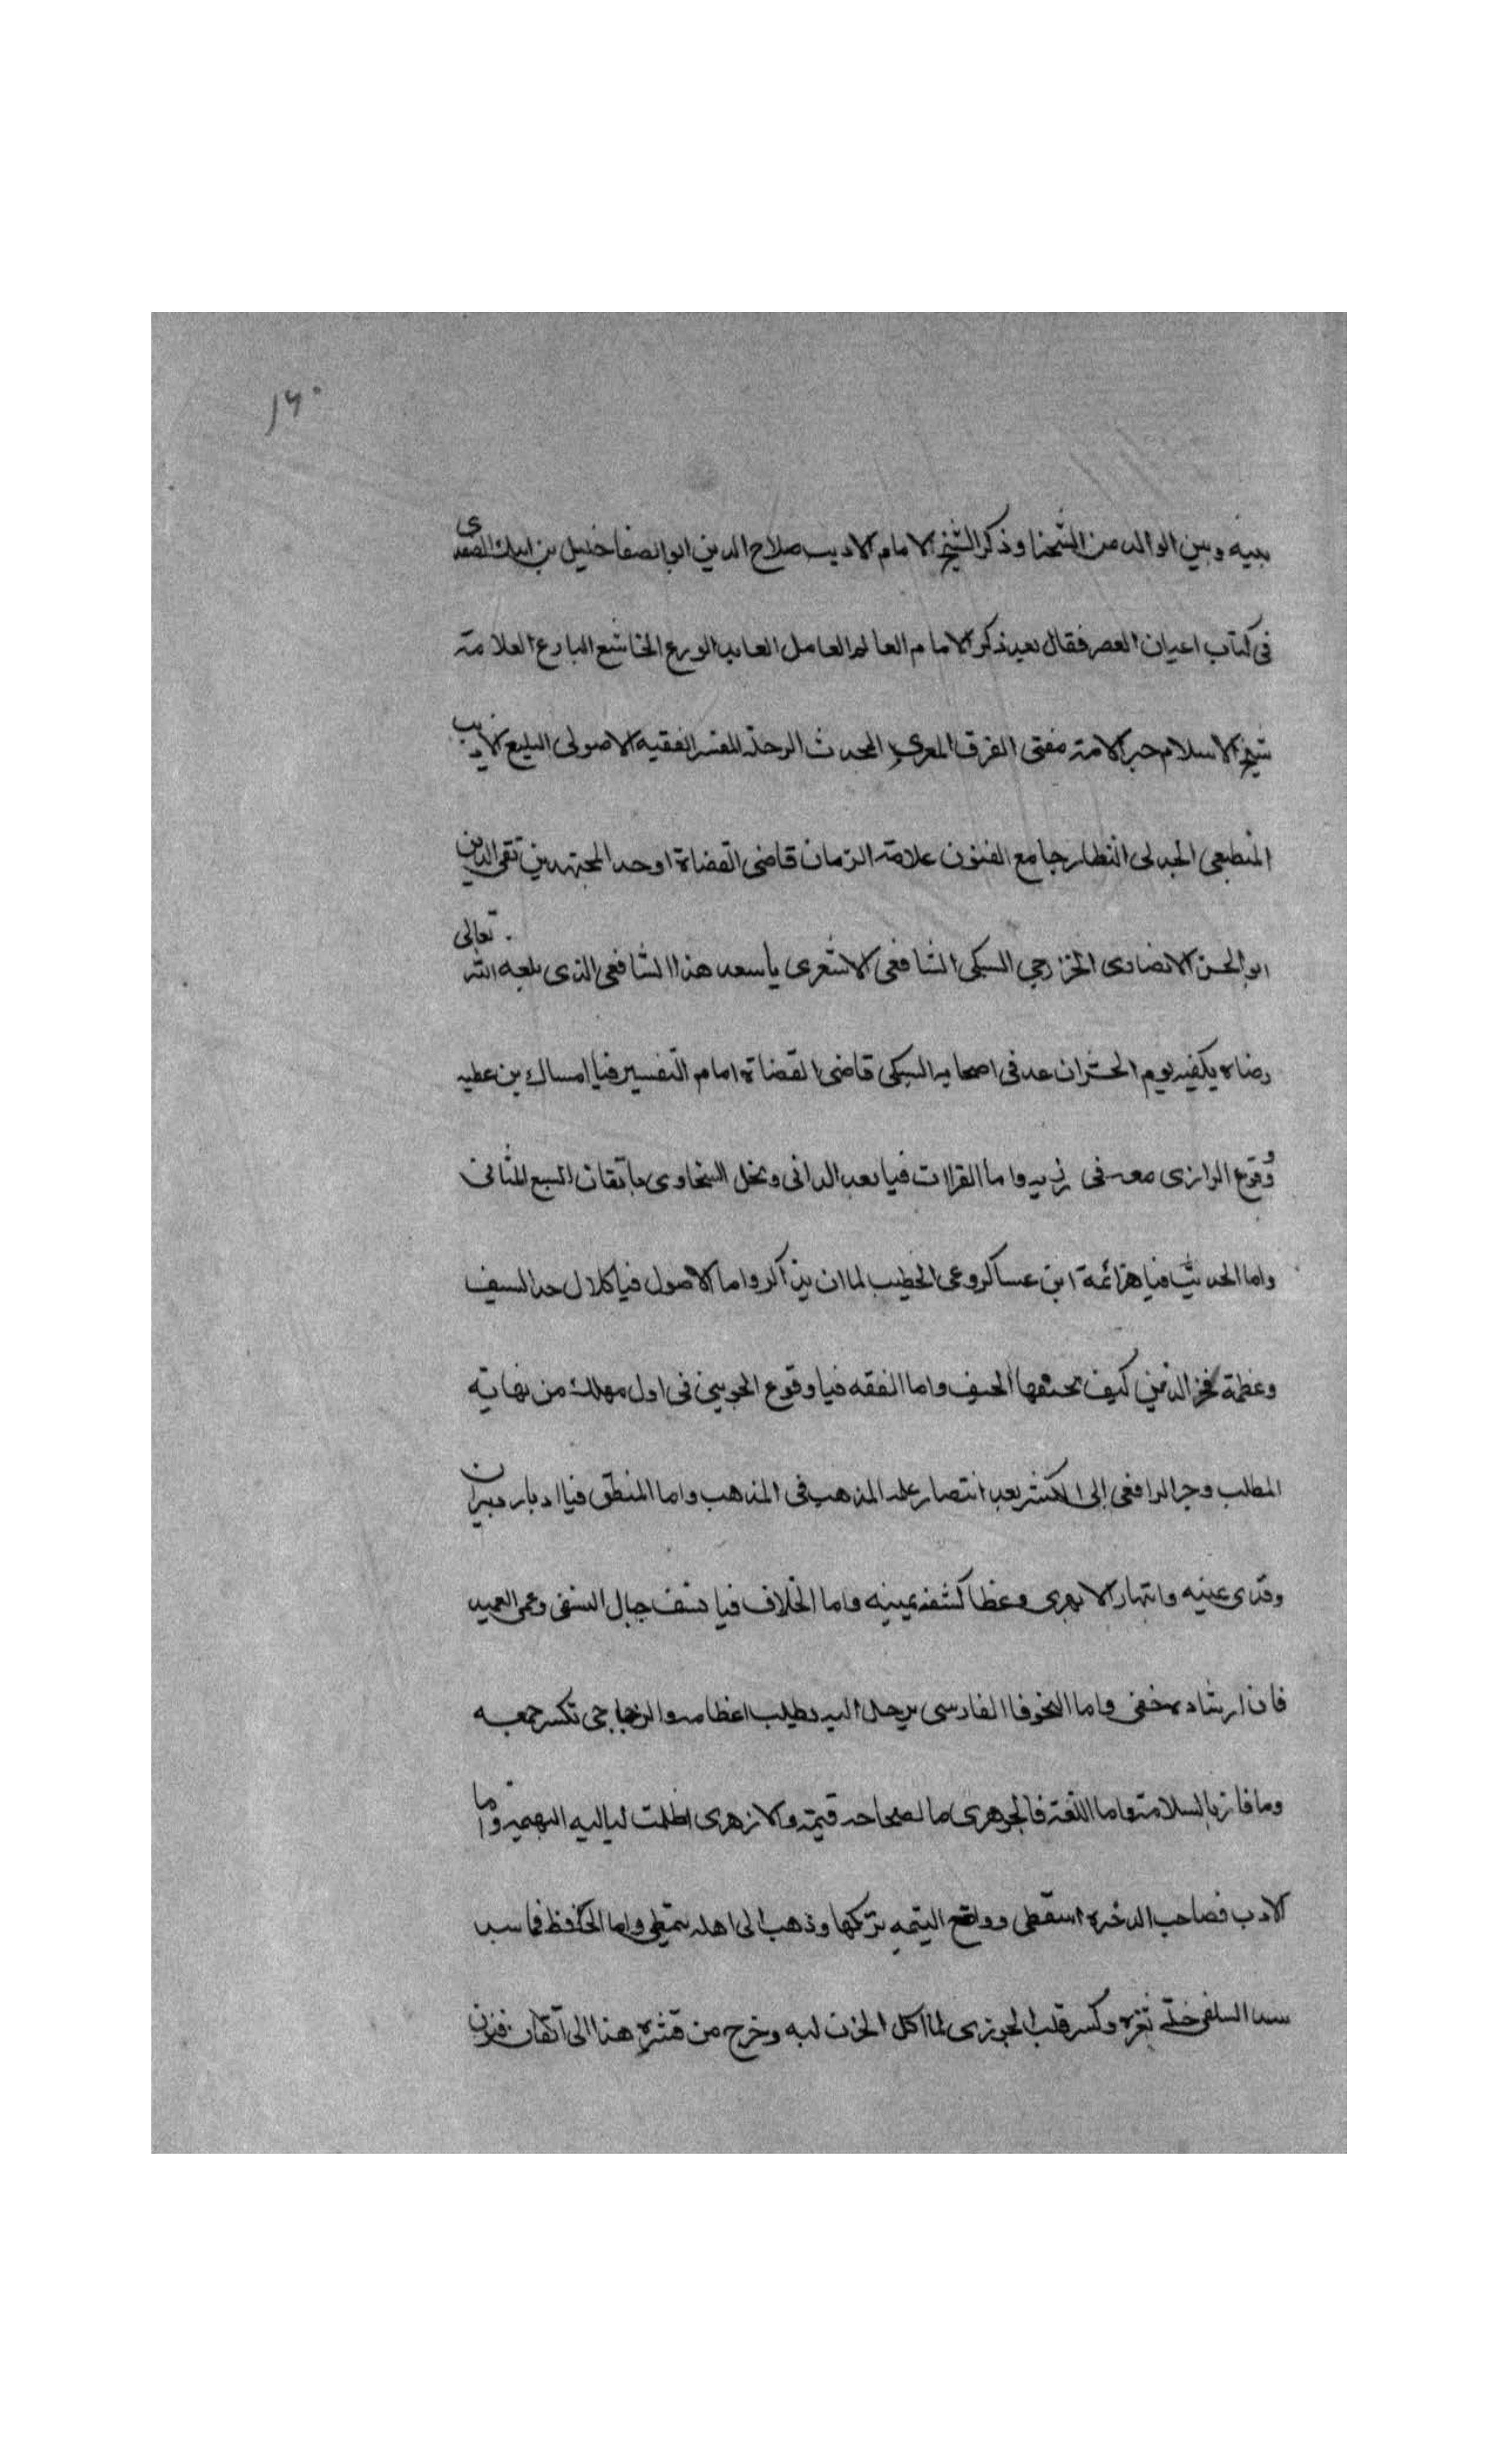 ١٦٠
بينه وبين الوالد من الشحنا وذكر الشيخ الامام الاديب صلاح الدين ابو الصفا خليل بن ايبك الصفدى
فى كتاب اعيان العصر فقال بعد ذكر الامام العالم العامل العابد الورع الخاشع البارع العلامة
شيخ الاسلام حبر الامة مفتى الفرق المقرى المحدث الرحلة المفسر الفقيه الاصولى البليغ الاديب
المنطقى الجدلى النظار جامع الفنون علامة الزمان قاضى القضاة اوحد المجتهدين تقى الدين
ابو الحسن الانصارى الخزرجى السبكى الشافعى الاشعرى ياسعد هذا الشافعى الذى بلغه الله تعالى
رضاه يكفيه يوم الحشر ان عد فى اصحابه السبكى قاضى القضاة امام التفسير فيا امساك بن عطيه
ووقوع الرازى معه فى رزيه واما القراات فيا بعد الدانى وبخل السخاوى باتقان السبع المثانى
واما الحديث فيا هزائمة ابن عساكر وعى الخطيب لما ان يذاكر واما الاصول فيا كلال حد السيف
وعظمة فخر الدين كيف تحيفها الحيف واما الفقه فيا وقوع الجوينى فى اول مهلك من نهاية
المطلب وجر الرافعى الى الكسر بعد انتصار علم المذهب فى المذهب واما المنطق فيا ادبار دبيران
وقذى عينه وانبهار الابهرى وغطا كشفه يمينه واما الخلاف فيا نسف جبال النسفى وعمى العميد
فان ارشاده خفى واما النحو فالفارسى يرحل اليه يطلب اعظامه والزجاجى تكسر جمعه
وما فاز بالسلامة واما اللغة فالجوهرى ما لصحاحه قيمة والازهرى اظلمت لياليه البهيمه واما
الادب فصاحب الذخيره استعطى وواضع اليتيمه تركها وذهب الى اهله يتمطى واما الحفظ فما سد
سد السلفى خلة ثغره وكسر قلب الجوزى لما اكل الحزن لبه وخرج من قشره هذا الى اتقان فنون